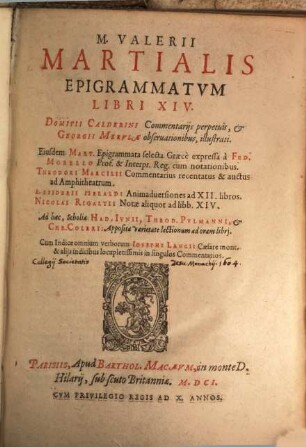 M. VALERII
MARTIALIS
EPIGRAMMATVM
LIBRI XIV.
DOMITII CALDERINI Commentarijs perpetuis, &
GEORGII MERVLÆ obseruationibus, illustrati.
Eiusdem MART. Epigrammata selecta Græcè expressa à FED.
MORELLO Prof. & Interpr. Reg. cum notationibus.
THEODORI MARCILII Commentarius recentatus & auctus
ad Amphitheatrum.
DESIDERII HERALDI Animaduersiones ad XII. libros.
NICOLAI RIGALTII Notæ aliquot ad libb. XIV.
Ad hæc, Scholia HAD. IVNII, THEOD. PVLMANNI, &
CHR. COLERI: Apposita varietate lectionum ad oram libri.
Cum Indice omnium verborum IOSEPHI LANGII Cæsare mont.
& alijs indicibus locupletissimis in singulos Commentarios.
Collegij Societatis Iesu Monachij 1604.
PARISIIS, Apud BARTHOL. MACÆVM, in monte D.
Hilarij, sub scuto Britanniæ. M. DCI.
CVM PRIVILEGIO REGIS AD X. ANNOS.